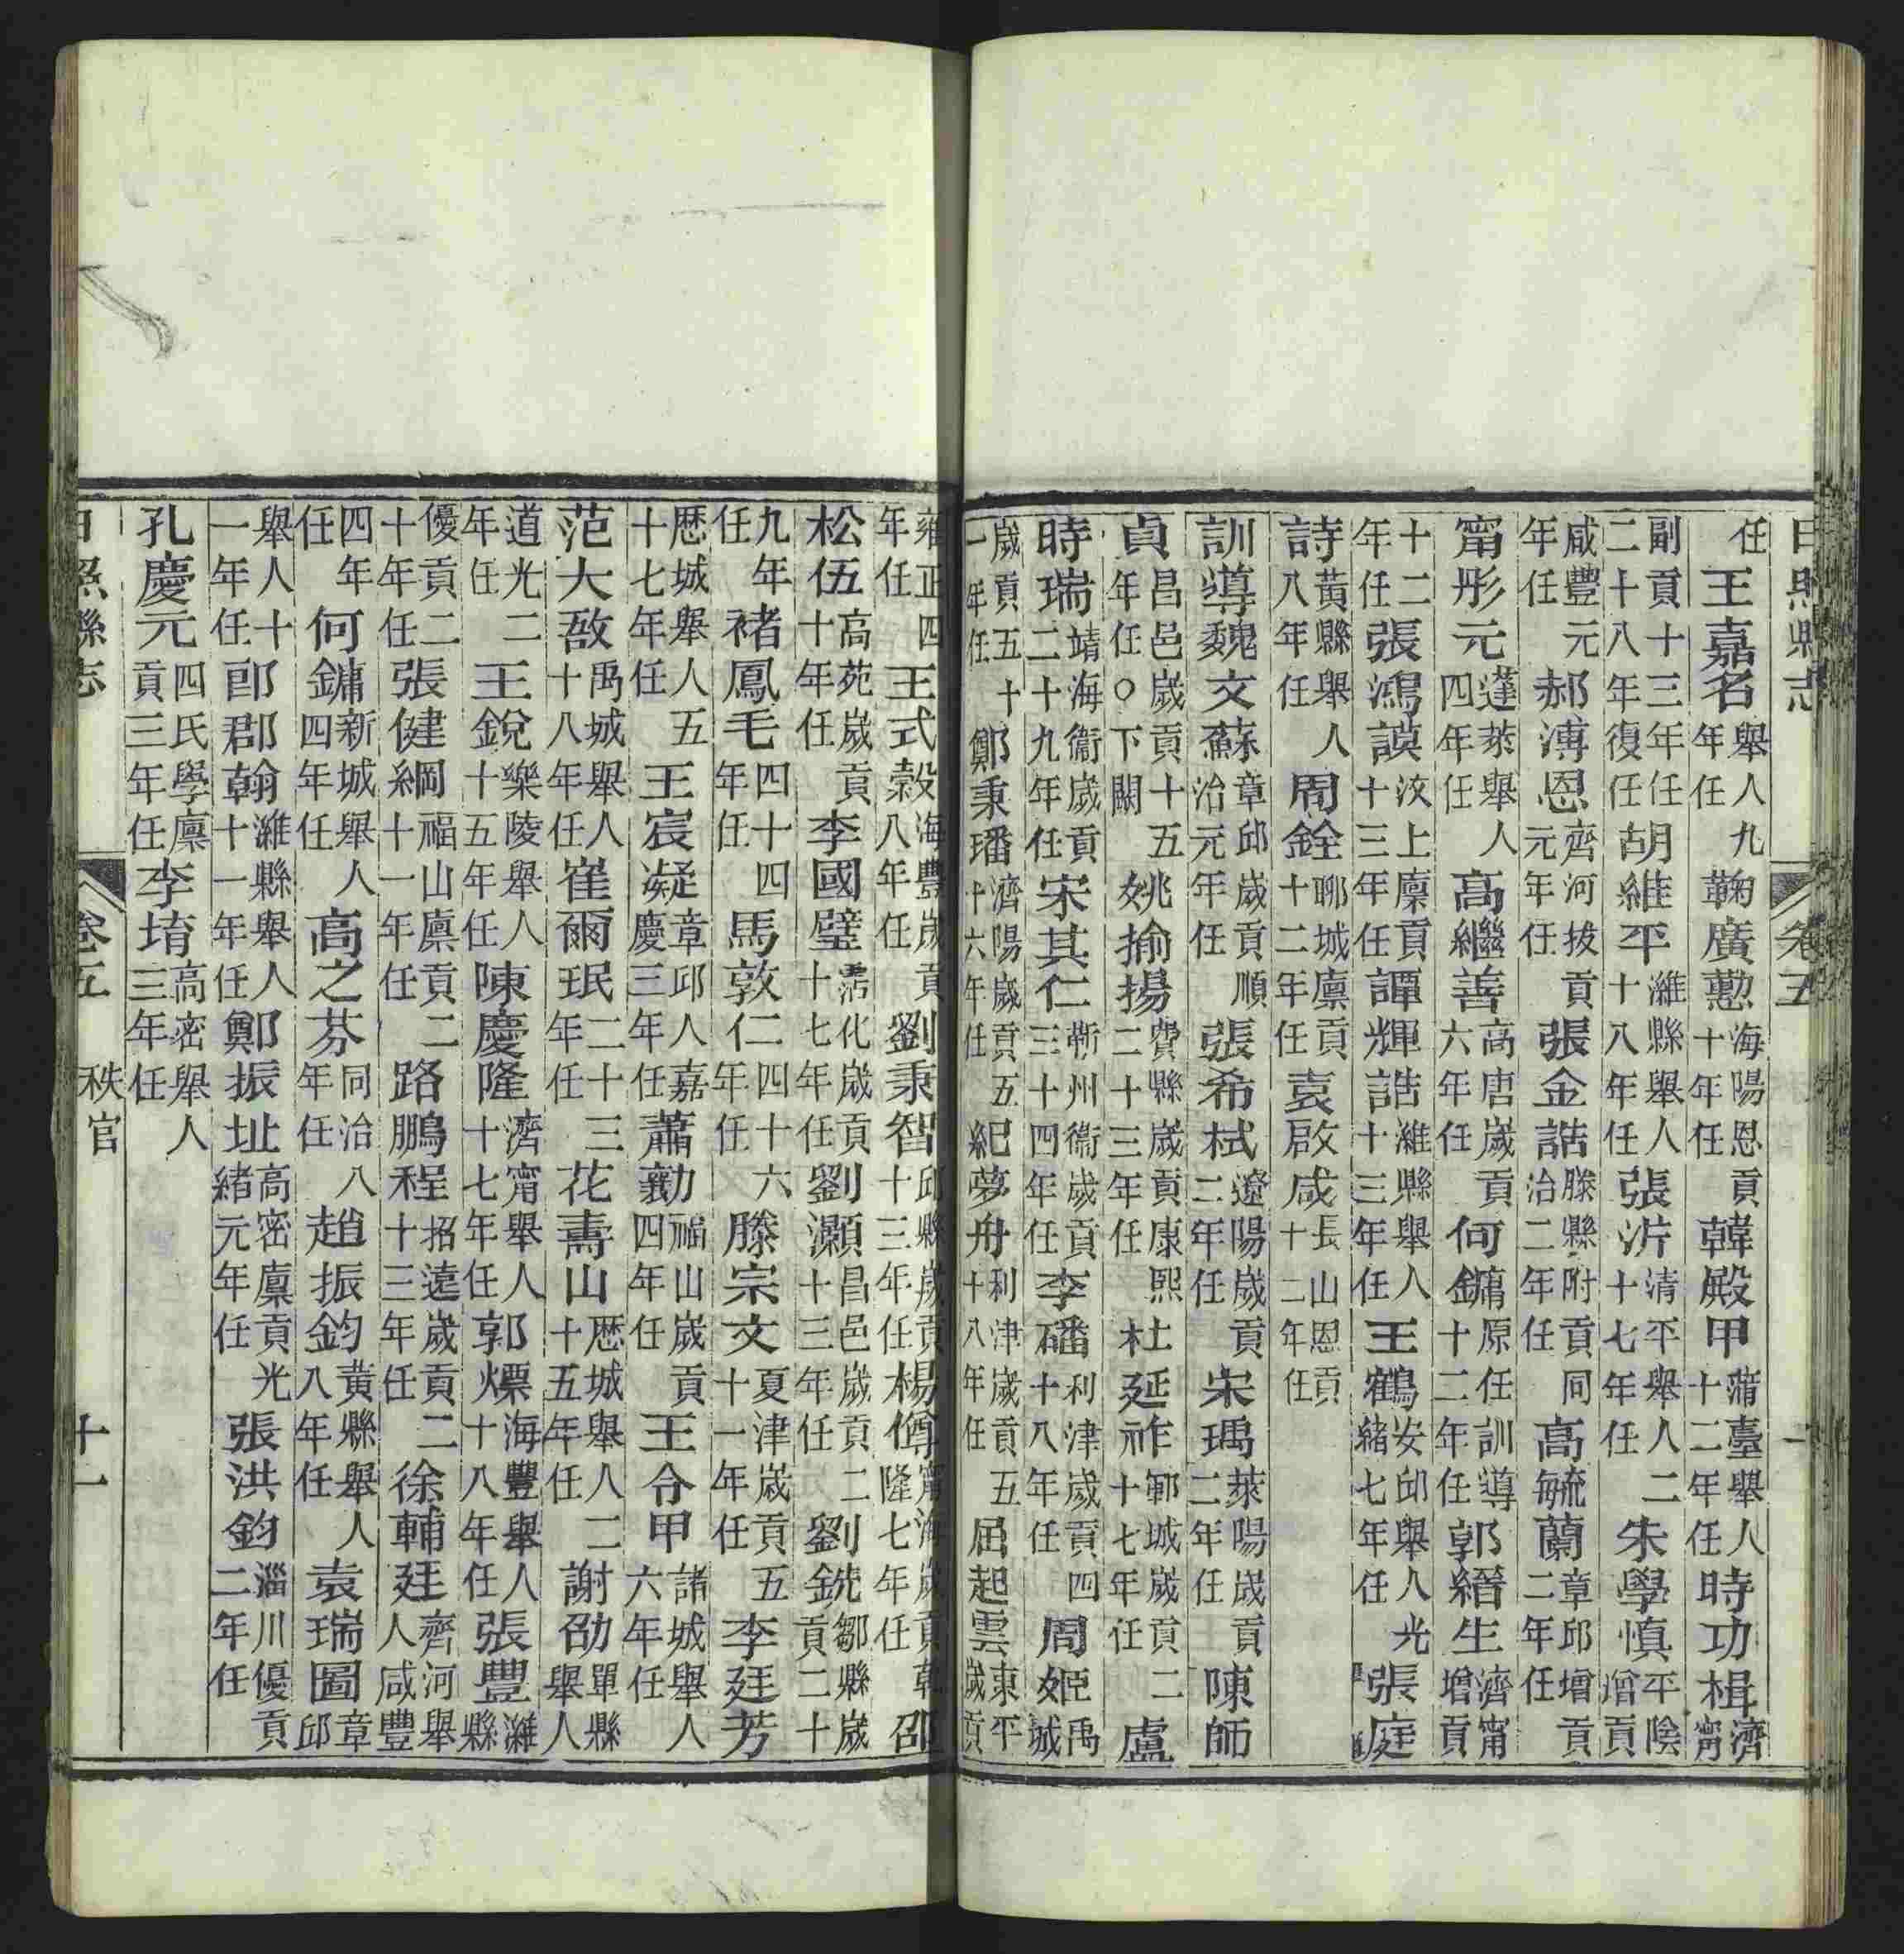 日照縣志 卷五
任 王嘉名 舉人九年任 鞠廣懃 海陽恩貢十年任 韓殿甲 蒲臺舉人十二年任 時功楫 濟甯
副貢十三年任二十八年復任 胡維平 濰縣舉人十八年任 張沂 清平舉人二十七年任 朱學慎 平陰增貢
咸豐元年任 郝溥恩 齊河拔貢元年任 張金誥 滕縣附貢同治二年任 高毓蘭 章邱增貢二年任
甯彤元 蓬萊舉人四年任 高繼善 高唐歲貢六年任 何鏞 原任訓導十二年任 郭縉生 濟甯增貢
十二年任 張鴻謨 汶上廩貢十三年任 譚輝誥 濰縣舉人十三年任 王鶴 安邱舉人光緒七年任 張庭
詩 黃縣舉人八年任 周銓 聊城廩貢十二年任 袁啟咸 長山恩貢十二年任
訓導 魏文蘇 章邱歲貢順治元年任 張希栻 遼陽歲貢二年任 宋瑀 萊陽歲貢二年任 陳師
貞 昌邑歲貢十五年任○下闕 姚揄揚 費縣歲貢康熙二十三年任 杜延祚 鄆城歲貢二十七年任 盧
時瑞 靖海衞歲貢二十九年任 宋其仁 蘄州衞歲貢三十四年任 李磻 利津歲貢四十八年任 周姬 禹城
歲貢五十一年任 鄭秉璠 濟陽歲貢五十六年任 紀夢舟 利津歲貢五十八年任 屈起雲 東平歲貢
雍正四年任 王式穀 海豐歲貢八年任 劉秉智 邱縣歲貢十三年任 楊僔 甯海歲貢乾隆七年任 邵
松伍 高苑歲貢十年任 李國璧 霑化歲貢十七年任 劉灝 昌邑歲貢二十三年任 劉銑 鄒縣歲貢二十
九年任 褚鳳毛 四十四年任 馬敦仁 四十六年任 滕宗文 夏津歲貢五十一年任 李廷芳
歷城舉人五十七年任 王宸凝 章邱人嘉慶三年任 蕭勷 福山歲貢四年任 王令甲 諸城舉人六年任
范大敔 禹城舉人十八年任 崔爾珉 二十三年任 花壽山 歷城舉人二十五年任 謝劭 單縣舉人
道光二年任 王銳 樂陵舉人十五年任 陳慶隆 濟甯舉人十七年任 郭熛 海豐舉人十八年任 張豐 濰縣
優貢二十年任 張健綱 福山廩貢二十一年任 路鵬程 招遠歲貢二十三年任 徐輔廷 齊河舉人咸豐
四年任 何鏞 新城舉人四年任 高之芬 同治八年任 趙振鈞 黃縣舉人八年任 袁瑞圖 章邱
舉人十一年任 郎郡翰 濰縣舉人十一年任 鄭振址 高密廩貢光緒元年任 張洪鈞 淄川優貢二年任
孔慶元 四氏學廩貢三年任 李堉 高密舉人三年任
日照縣志 卷五 秩官 十一